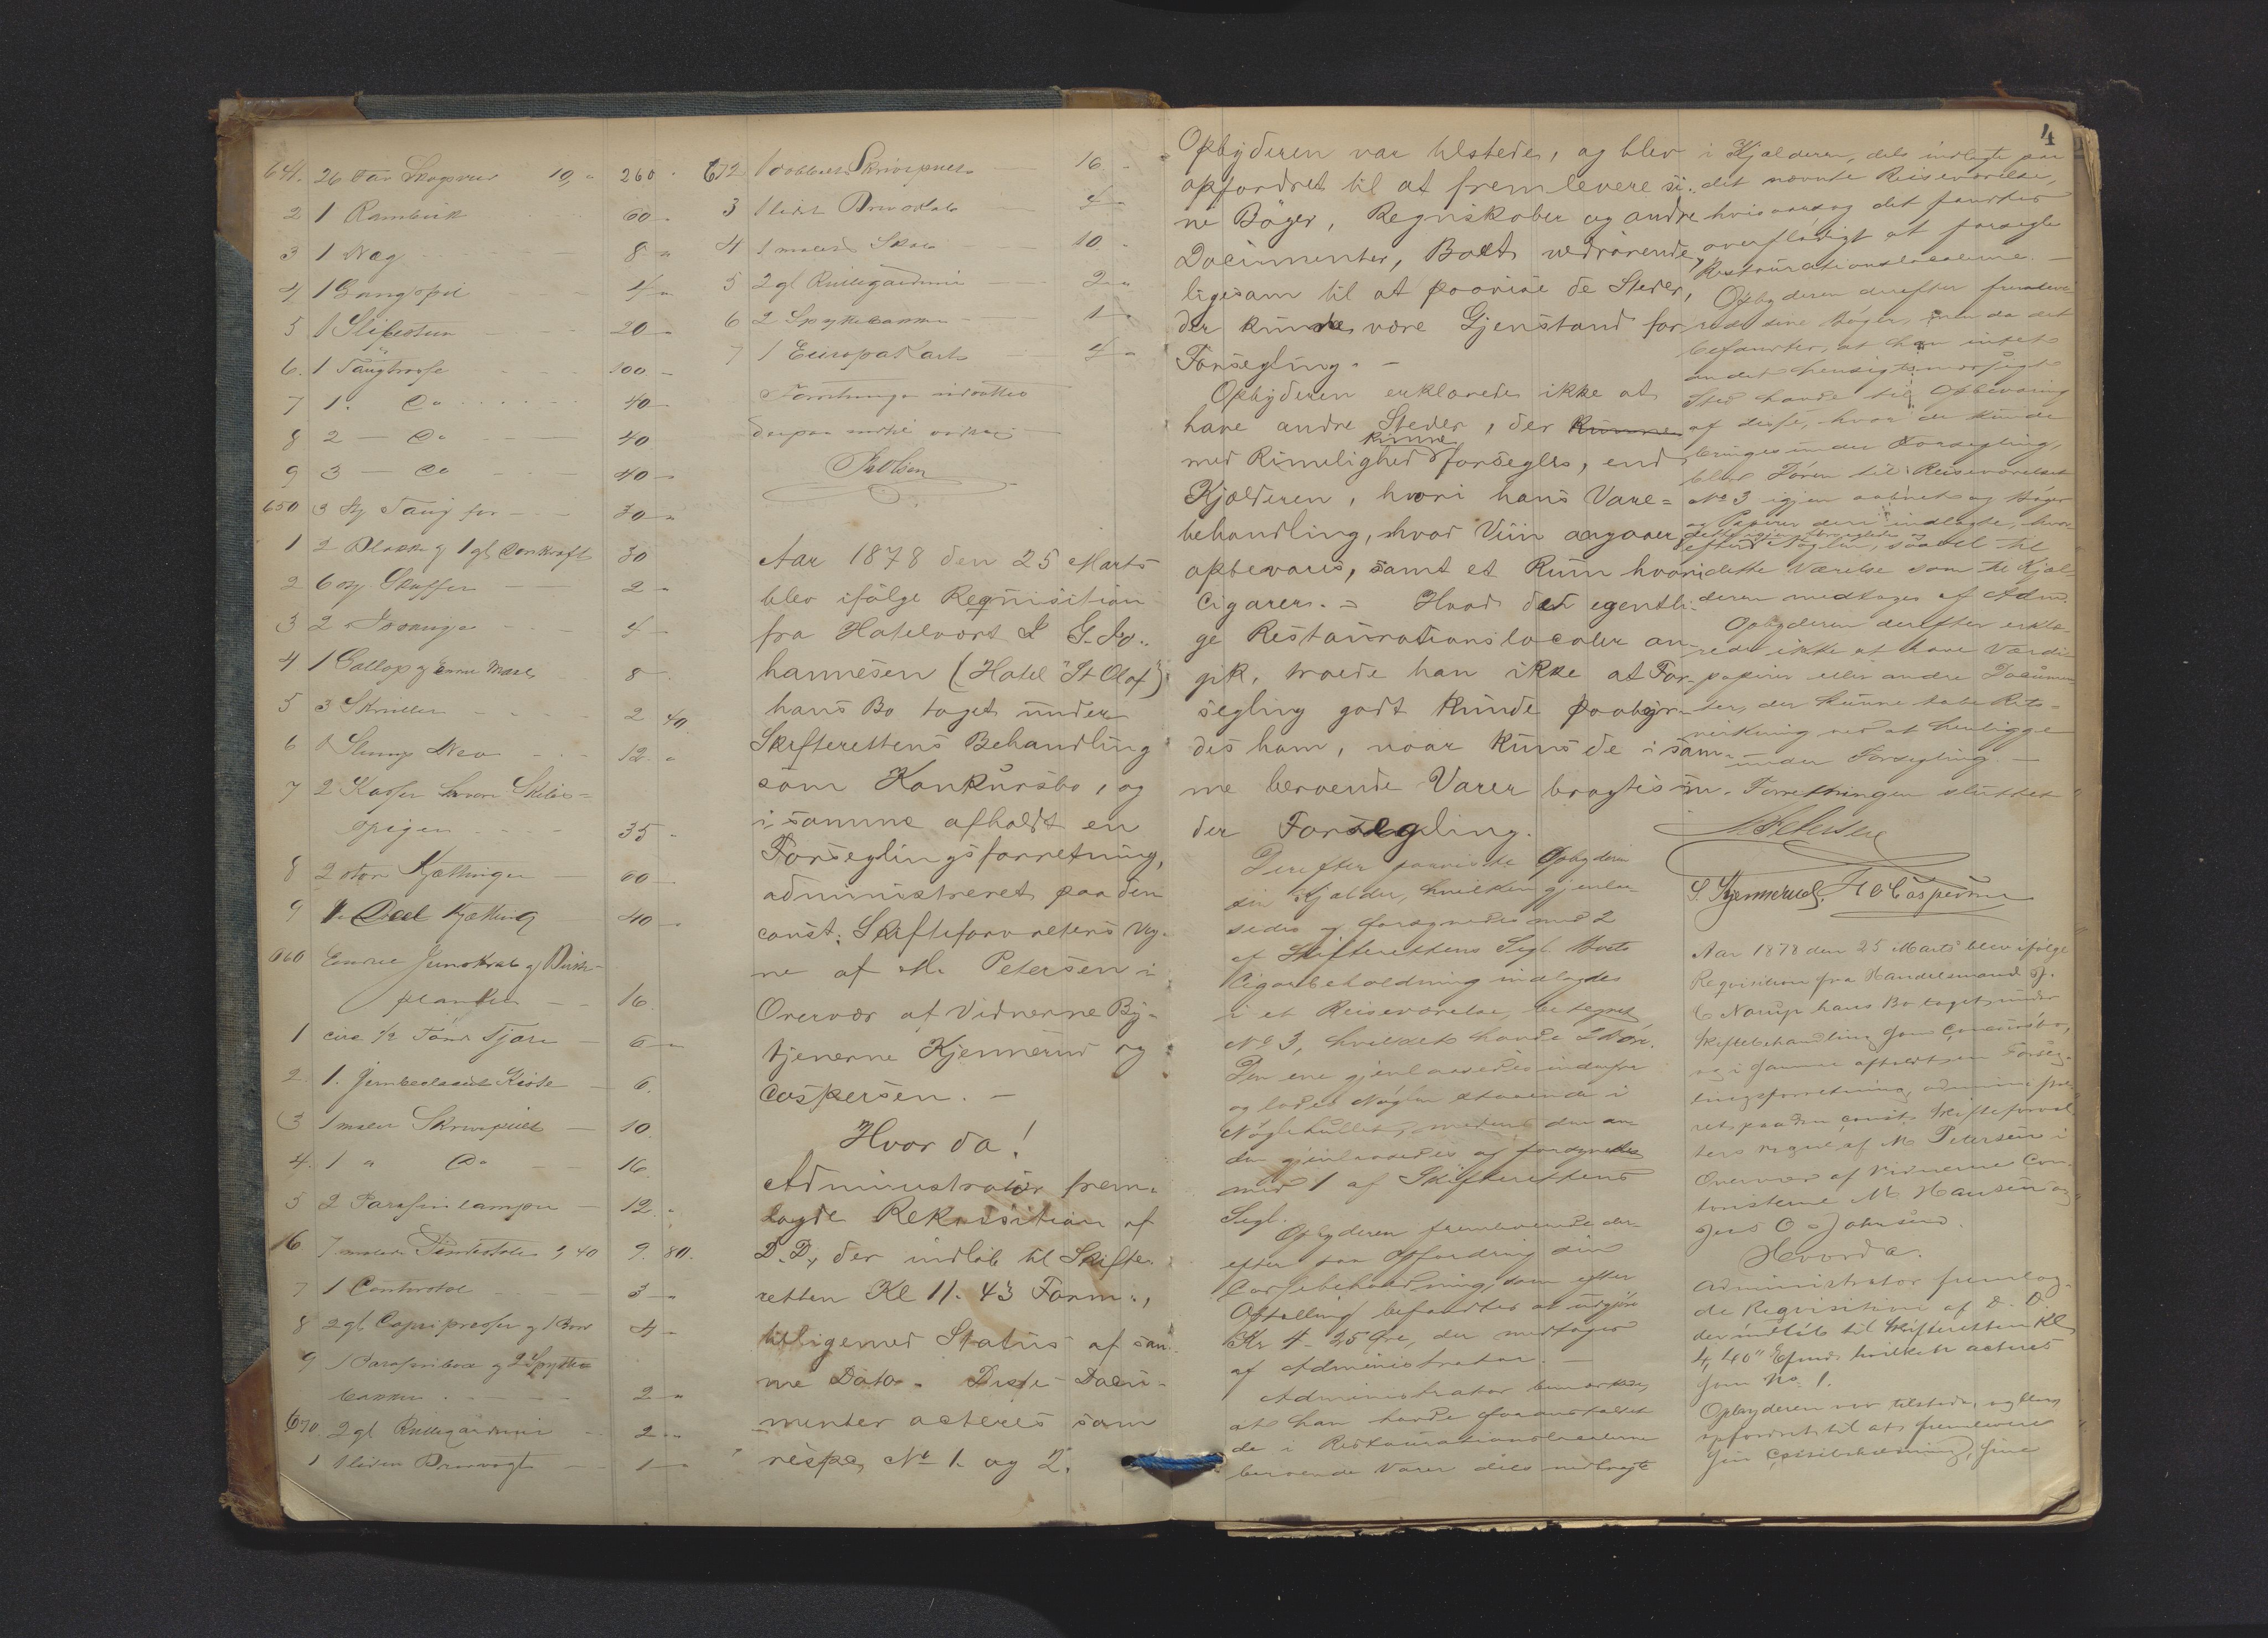 641. 26 Tør 10 " 260 "
2 1 Rambuk 60 "
3 1 Væg 8 "
4 1 Gangspil 4 "
5 1 Slibesteen 20 "
6. 1 Taugtrosse 100 "
7 1. Do 40 "
8 2 — Do 40
9 3 — Do 40 "
650 3 Taug for 30 "
1 2 Blokke og 1 gl Donkraft 30
2 6 2 "
3 2 4 "
4 1 8
5 3 Skruer 2 40
6 1 12 "
7 2 Kasser
35 "
8 2 store Kjættinger 60
9 1 Deel Kjætting 40 "
660 Endeel Jernskrab og
planker 16
1 circa 1/2 Tønde Tjære 6 "
2. 1. Jernbeslaaet Kiste 6.
3 1 malet Skrivepult 10
4. 1 " Do 16
5 2 Parafinlamper 12 "
6 7 malede 1,40 9. 80.
7 1 Contorstol 3 "
8 2 gl. Copipresser og 1 Bord 4 "
9 1 og 2 Spytte
bakker 2 "
670 2 gl Rullegardiner 2 "
1 1 liden 1 "
672 1 dobbelt Skrivepult 16 "
3 1 lidet 4 "
4 1 malet Skab 10 "
5 2 gl Rullegardiner 2 "
6 2 Spyttebakker 1 "
7 1 Europakart 4 "
Forretningen
derpaa
Aar 1878 den 25 Marts
blev ifölge Reqvisition
fra Hotelvært I G. Jo-
hannesen (Hotel "St Olaf")
hans Bo taget under
Skifterettens Behandling
som Konkursbo, og
i samme afholdt en
Forseglingsforretning,
administreret paa den
const. Skifteforvalters Veg-
ne af M. Petersen i
Overvær af Vidnerne By-
tjenerne Kjennerud og
Caspersen. —
Hvor da!
Administrator frem-
lagde Rekvisition af
D. D., der indlöb til Skifte-
retten Kl 11. 43 Form:,
tilligemed Status af sam-
me Dato. Disse Docu-
menter acteres som
resp. No 1 og 2.
4
Opbyderen var tilstede, og blev
opfordret til at fremlevere si-
ne Böger, Regnskaber og andre
Documenter, Boet vedrörende,
ligesom til at paavise de Steder,
der kunde være Gjenstand for
Forsegling. —
Opbyderen erklærede ikke at
have andre Steder, der kunne
kunne
med Rimelighed forsegles, end
Kjælderen, hvori hans Vare-
behandling, hvad Viin angaaer,
opbevares, samt et Rum hvori
Cigarer. — Hvad det egentli-
ge Restaurationslocaler an-
gik, troede han ikke at For-
segling godt kunde paabyr-
des ham, naar kuns de i sam-
me beroende Varer bragtes un-
der Forsegling.
Derefter paaviste Opbyderen
sin Kjælder, hvilken gjenlaa-
sedes og forsynedes med 2
af Skifterettens Segl. Boets
Cigarbeholdning indlagdes
i et Reiseværelse, betegnet
No 3, hvilket havde 2 Döre.
Den ene gjenlaasedes indenfra
og lodes Nöglen staaende i
Nöglehullet, medens den an-
den gjenlaasedes og forsynedes
med 1 af Skifterettens
Segl.
Opbyderen fremleverede der-
efter paa Opfordring sin
Cassebeholdning, som efter
Optælling befandtes at udgjöre
Kr 4 - 25 Øre, der modtages
af Administrator. —
Administrator bemærkede,
at han havde foranstaltet
de i Restaurationslocalerne
beroende Varer dels nedbragt
i Kjælderen, dels indlagte paa
det nævnte Reiseværelse,
hvisaarsag det fandtes
overflödigt at forsegle
Restaurationslocalerne. —
Opbyderen derefter fremleve-
rede sine Böger, men da det
befandtes, at han intet
andet hensigtsmæssigt
Sted havde til Opbevaring
af disse, hvor de kunde
bringes under Forsegling,
blev Dören til Reiseværelset
No 3 igjen aabnet og Böger
og Papirer deri indlagte, hvor-
efter Nöglen, saavel til
dette Værelse som til Kjæl-
deren modtages af Adm.
Opbyderen derefter erklæ-
rede ikke at have Værdi-
papirer eller andre Docume-
nter, der kunne tabe Rets-
virkning ved at henligge
under Forsegling. —
Forretningen sluttet
S. Kjennerud. Caspersen
Aar 1878 den 25 Marts blev ifölge
Reqvisition fra Handelsmand
C Narup hans Bo taget under
Skiftebehandling som Concursbo,
og i samme afholdt en Forseg-
lingsforretning, administre-
ret paa den const. Skifteforval-
ters vegne af M Petersen i
Overvær af Vidnerne Con-
toristerne M Hansen og
Jens O Johnsen.
Hvorda.
Administrator fremlag-
de Reqvisition af D. D.
der indlöb til Skifteretten Kl
4,40" Efmd. hvilken acteres
som No. 1.
Opbyderen var tilstede, og blev
opfordret til at fremlevere
sin Cassebeholdning, sine